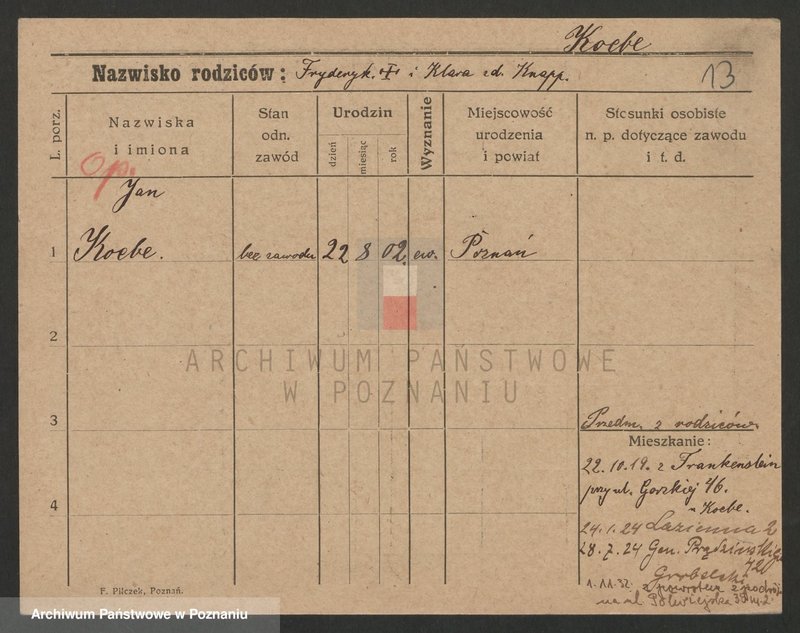 Koebe
Nazwisko rodziców: Fryderyk i Klara zd. Knapp.
13
L. porz.
Nazwiska i imiona
Stan odn. zawód
Urodzin
dzień
miesiąc
rok
Wyznanie
Miejscowość urodzenia i powiat
Stosunki osobiste n. p. dotyczące zawodu i t. d.
Op.
Jan
1 Koebe. bez zawodu 22 8 02. ew. Poznań
2
ARCHIWUM PAŃSTWOWE
W POZNANIU
3
Przedm. z rodziców.
Mieszkanie:
22.10.19. z Frankenstein
przy ul. Gorskiej 46.
Koebe.
4
24.1.24 Łazienna 2
28.7.24 Gen. Prądzińskiego
z powrotem z podróży
na ul. Półwiejska
F. Pilczek, Poznań.
Archiwum Państwowe w Poznaniu